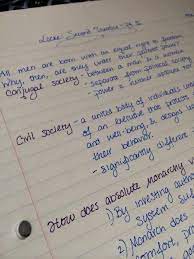 Locke Second Treatise - Pg II
All men are born with an equal right to freedom
Why, then, are they under
Conjugal society - between a man & a woman
- separate from political society
- power
Civil society - a united body of individuals
of an executive that protects
and well-being, & designs
their behavior.
- significantly different
How does absolute monarchy
1) By investing
system
2) Monarch does
comfort, power